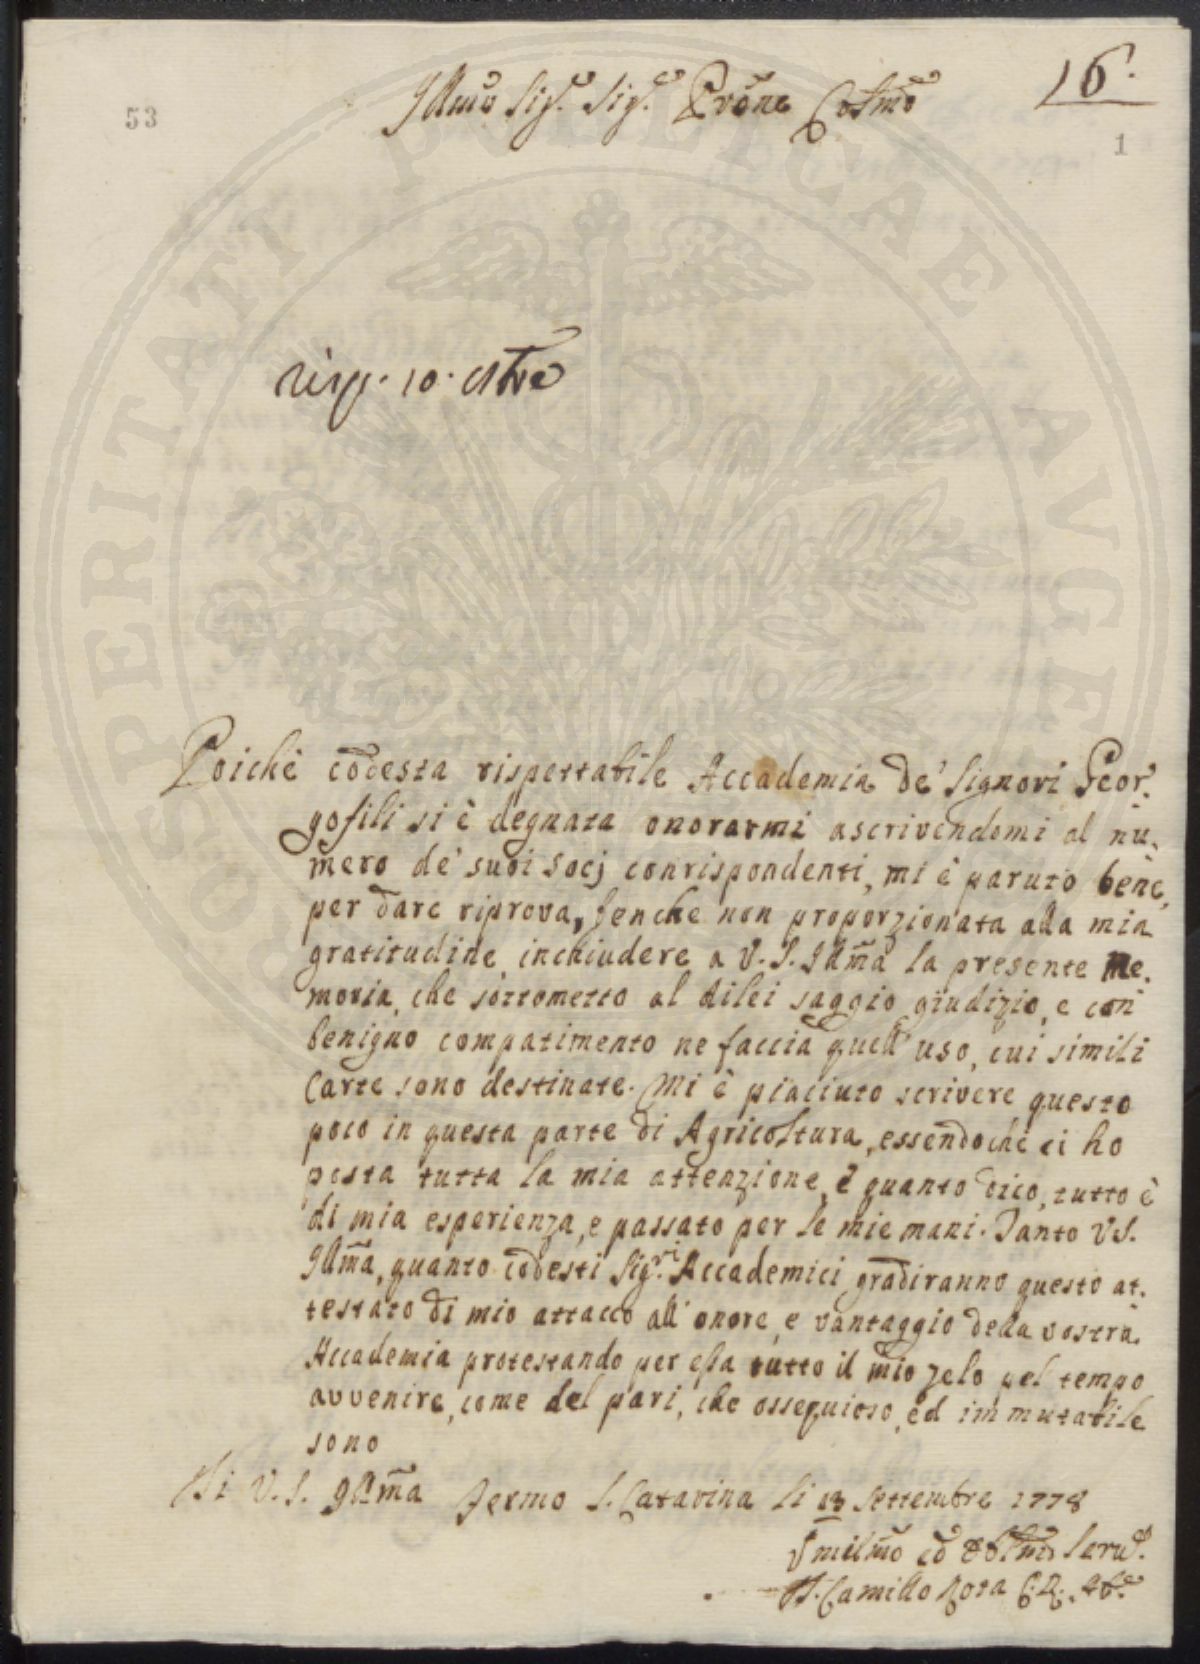 16.
53
1
Illmo Sig.re Sig.re Prone Colmo
risp. 10. Xbre
Poichè codesta rispettabile Accademia de' Signori Geor.
gofili si è degnata onorarmi ascrivendomi al nu.
mero de' suoi Socj conrispondenti, mi è paruto bene,
per dare riprova, benche non proporzionata alla mia
gratitudine, inchiudere a V. S. Illma la presente Me.
moria, che sottometto al dilei saggio giudizio, e con
benigno compatimento ne faccia quell' uso, cui simili
Carte sono destinate. Mi è piaciuto scrivere questo
poco in questa parte di Agricoltura, essendochè ci ho
posta tutta la mia attenzione, e quanto dico, tutto è
di mia esperienza, e passato per le mie mani. Tanto V. S.
Illma, quanto codesti Sig.ri Accademici gradiranno questo at.
testato di mio attacco all' onore, e vantaggio della vostra
Accademia protestando per essa tutto il mio zelo pel tempo
avvenire, come del pari, che ossequioso, ed immutabile
sono
Di V. S. Illma Fermo S. Catarina li 13 Settembre 1778
Umilmo ed Obblmo Serv.e
D. Camillo Rota C. R. Ab.e
PROSPERITATI PUBLICAE AVGENDAE